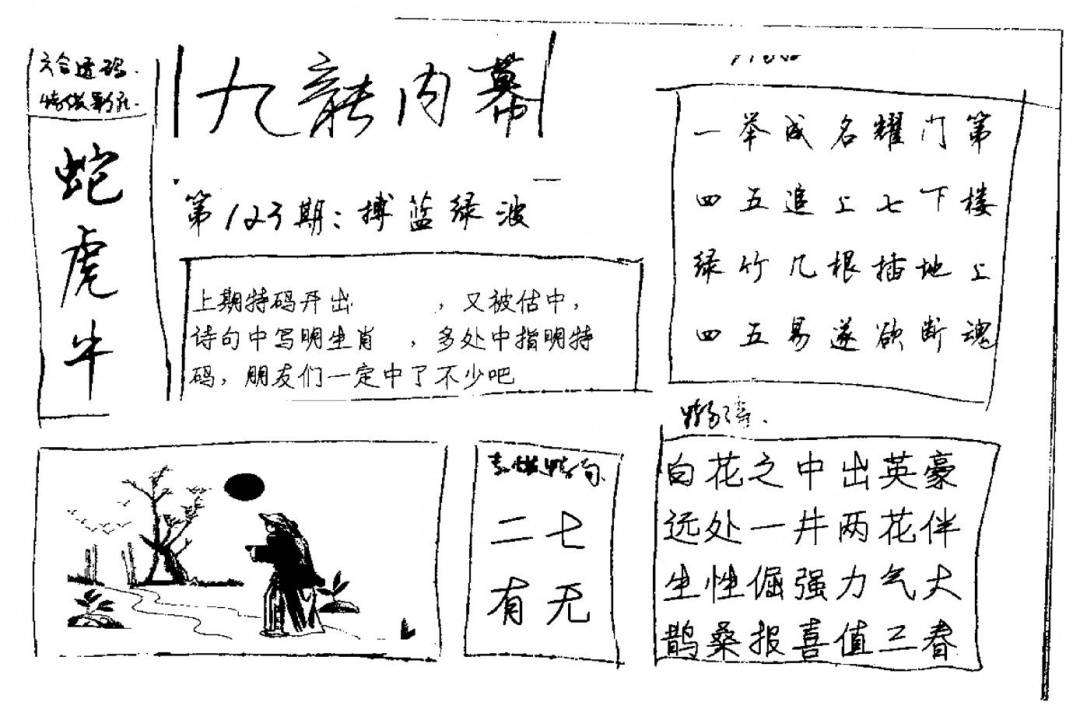 六合透码
九龍内幕
蛇
虎
牛
第123期：搏蓝绿波
上期特码开出 ，又被估中，
诗句中写明生肖 ，多处中指明特
码，朋友们一定中了不少吧
一举成名耀门第
四五追上七下楼
绿竹几根插地上
四五易遂欲断魂
二七
有无
白花之中出英豪
远处一井两花伴
生性倔强力气大
鹊桑报喜值工春